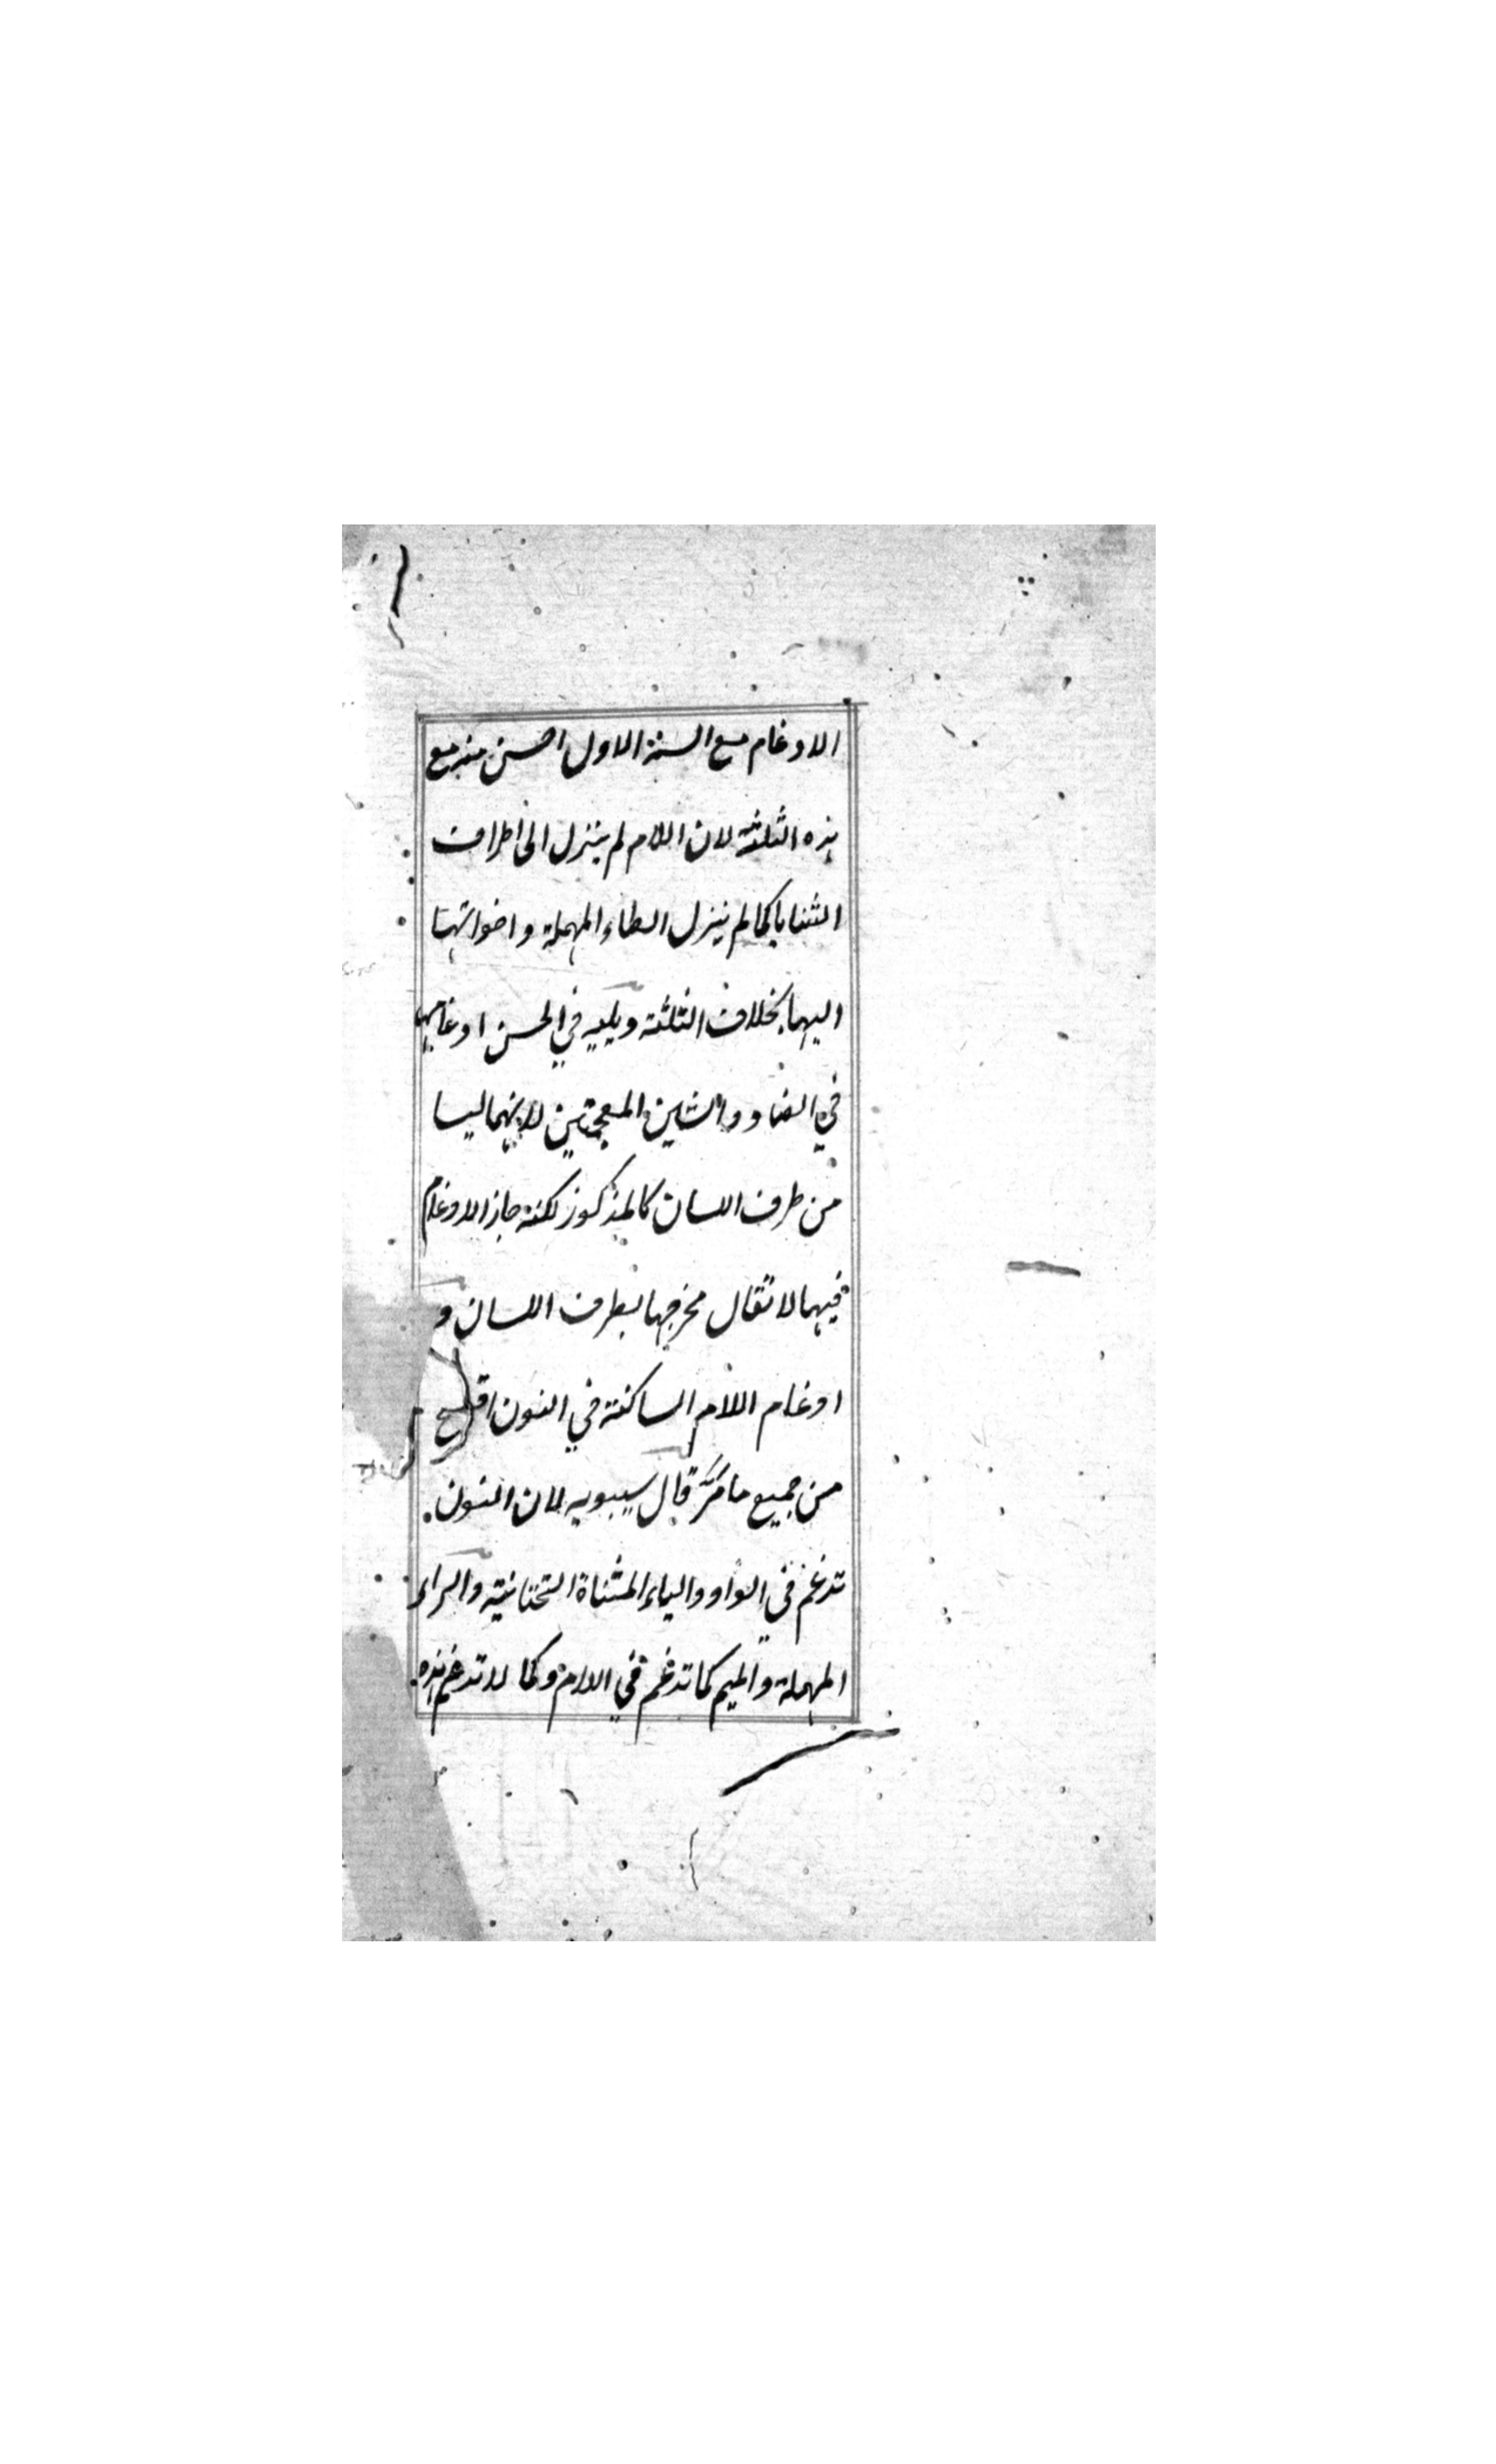 الادغام مع الستة الاول احسن منه مع
هذه الثلثة لان اللام لم ينزل الى اطراف
الثنايا كما لم ينزل الطاء المهملة واخواتها
اليها بخلاف الثلثة ويليه في الحسن ادغامها
في الضاد والشين المعجمتين لانهما ليسا
من طرف اللسان كالمذكور لكنه جاز الادغام
فيهما لاتقال مخرجها بطرف اللسان و
ادغام اللام الساكنة في النون اقبح
من جميع ما مَرَّ قال سيبويه لان النون
تدغم في الواو والياء المثناة التحتانية والراء
المهملة والميم كما تدغم في اللام وكما لا تدغم هذه